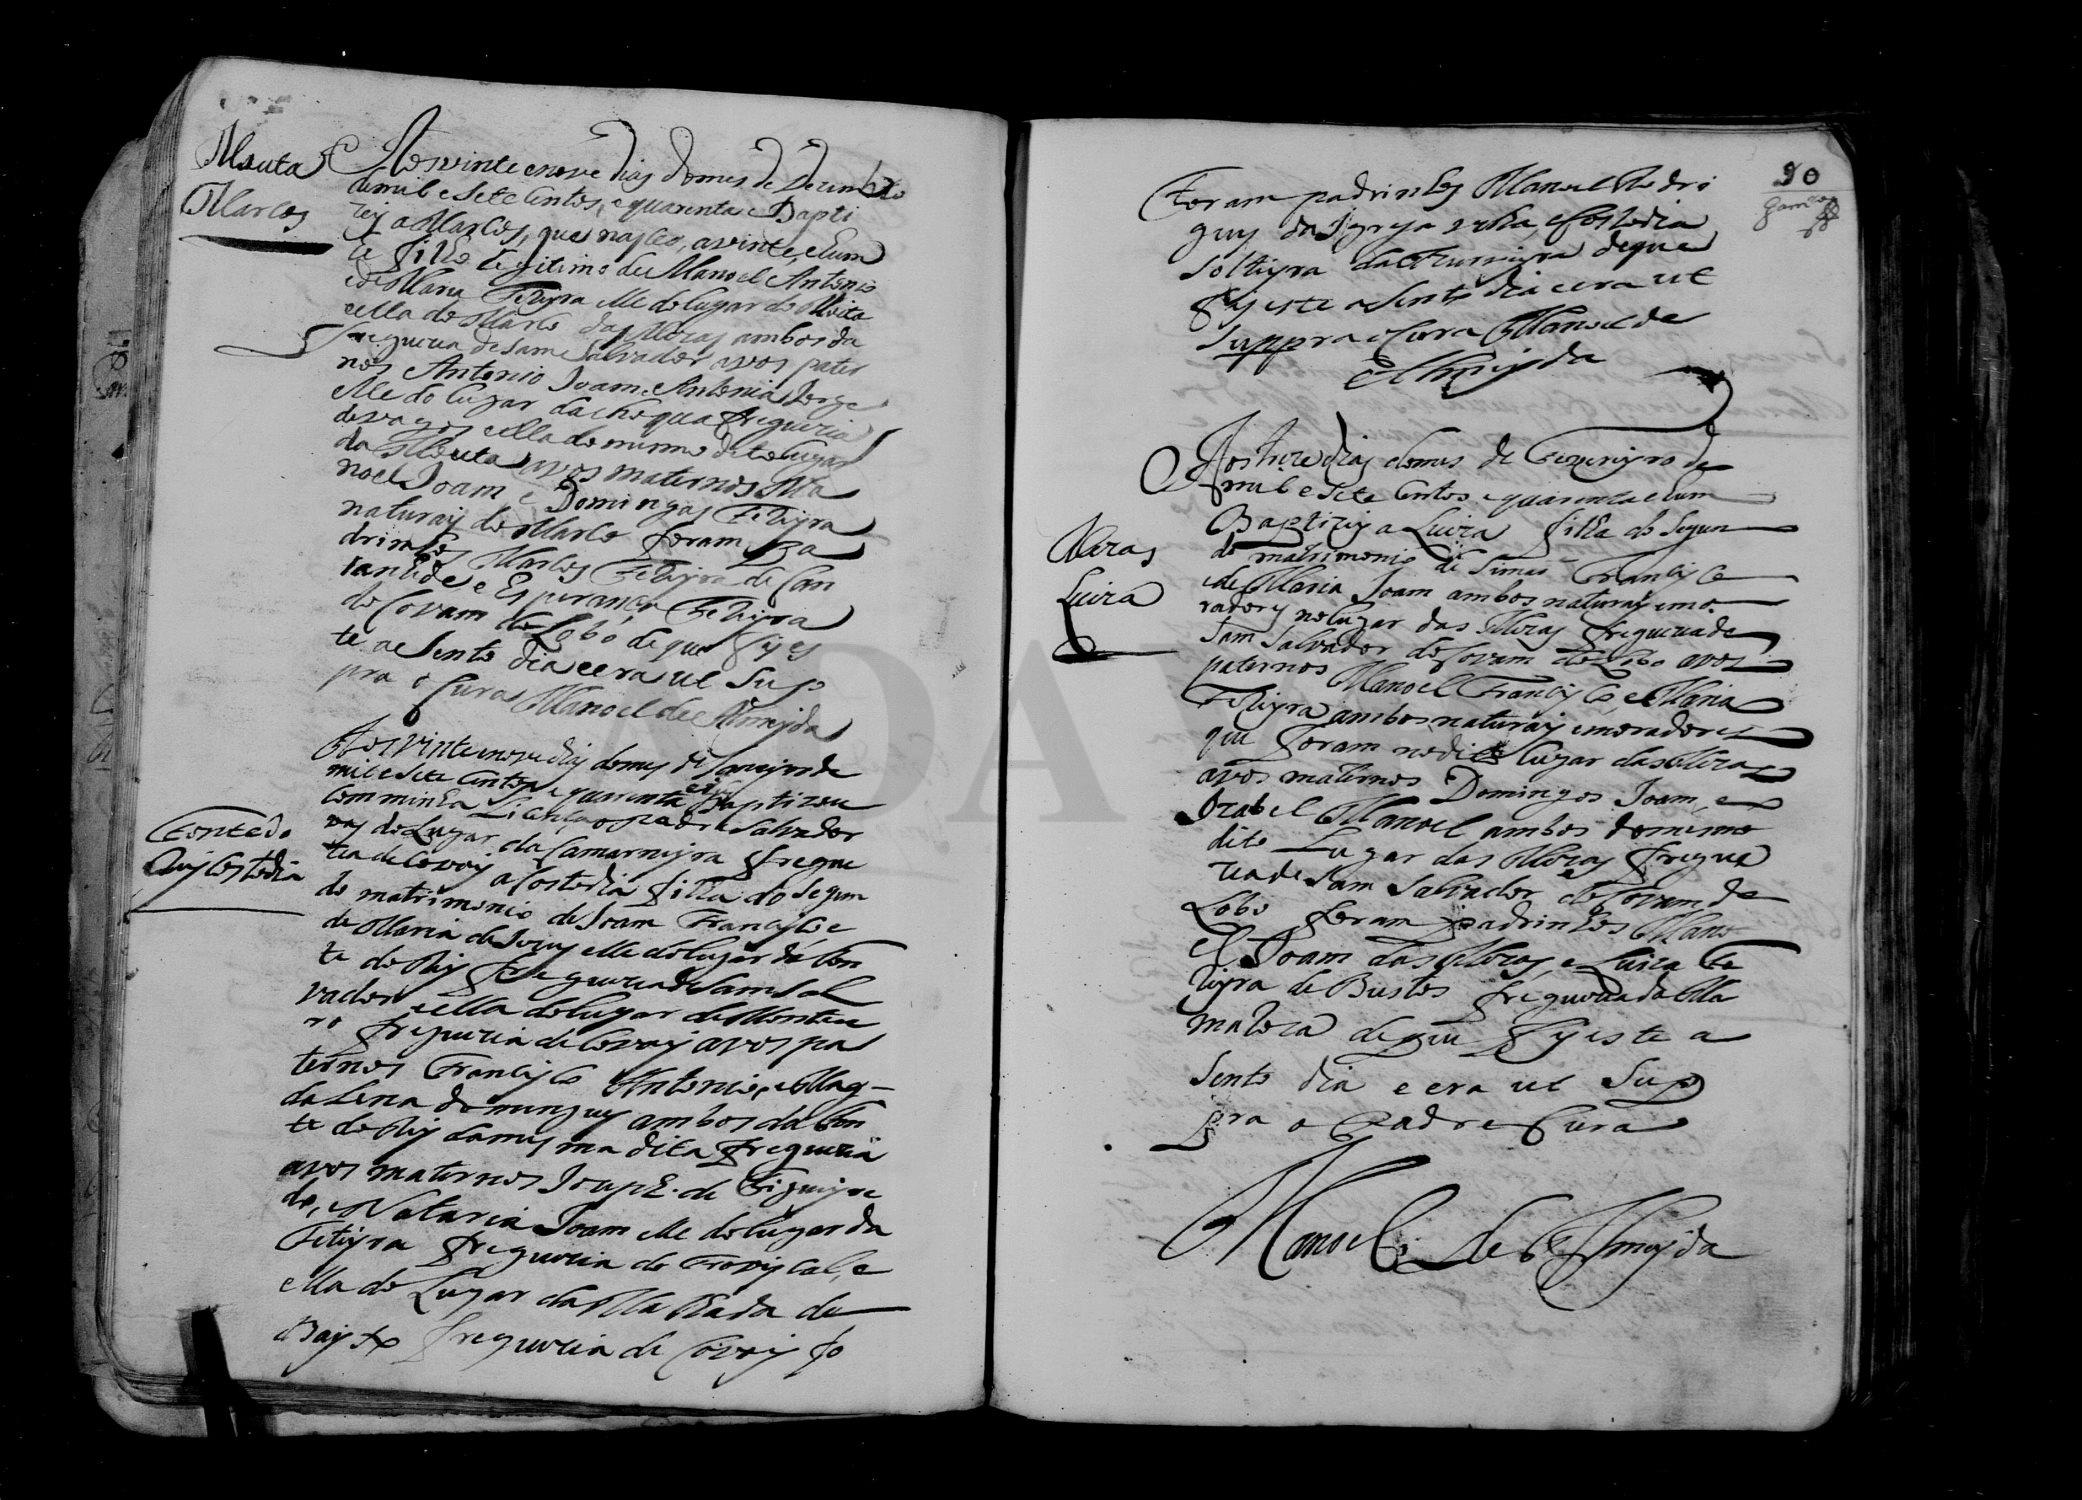 Mouta
Marcos
Aos vinte e nove dias do mes de Dezembro
de mil e sete Centos, e quarenta e Bapti
zey a Marcos, que nasceo, a vinte, e hum
filho legitimo de Manoel Antonio
e de Maria Ferreyra elle do lugar da Mouta
e ella do Marco das Meras ambos da
freguezia de Sam Salvador avos pater
nos Antonio Joam, e Antonia Jorge
elle do lugar da freguezia
de vagos e ella do mesmo dito lugar
da Mouta avos maternos Ma
noel Joam, e Domingas Ferreyra
naturais do Marco foram pa
drinhos Marcos Ferreyra de Can
tanhede e Esperança Ferreyra
de Covam do Lobo de que fis es
te asento dia e era ut Sup
pra o Cura Manoel de Almeyda
Aos vinte e nove dias do mes de Janeyro de
mil e sete Centos e quarenta e hum Baptizou
com minha Licença o padre Salvador
do Lugar da Camarneyra fregue
zia de Covoiz a Costodia filha do segun
do matrimonio de Joam Francisco e
de Maria de Jesus elle do lugar da Fon
te do Rey freguezia de Sam Sal
vador e ella do lugar de Montou
ro freguezia de Covoiz avos pa
ternos Francisco Antonio, e Mag-
dalena Domingues ambos da Fon
te do Rey da mesma dita freguezia
avos maternos Joseph de Figueyre
do, e Nataria Joam elle do lugar da
freguezia de Troviscal, e
ella do Lugar da Malhada de
Bayxo freguezia de Covoiz fo
Fonte do
Rey Costodia
90
Foram padrinhos Manoel Rodri
gues da Igreja velha, e Costodia
Solteyra da deque
fis este asento dia e era ut
suppra o Cura Manoel de
Almeyda
Aos treze dias do mes de Fevereyro de
mil e sete Centos e quarenta e hum
Baptizey a Luiza filha do Segun
do matrimonio de Simão Francisco
e de Maria Joam ambos naturais e mo
radores no lugar das Meras freguezia de
Sam Salvador de Covam do Lobo avos
paternos Manoel Francisco, e Maria
Ferreyra ambos naturais e moradores
que foram no dito lugar das Meras
avos maternos Domingos Joam, e
Izabel Manoel ambos do mesmo
dito Lugar das Meras fregue
zia de Sam Salvador de Covam do
Lobo foram padrinhos Mano
el Joam das Meras, e Luiza Fe
rreyra de Bustos freguezia da Ma
marroza de que fis este a
sento dia e era ut Sup
pra o Padre Cura
Manoel de Almeyda
Meras
Luiza
ADAV